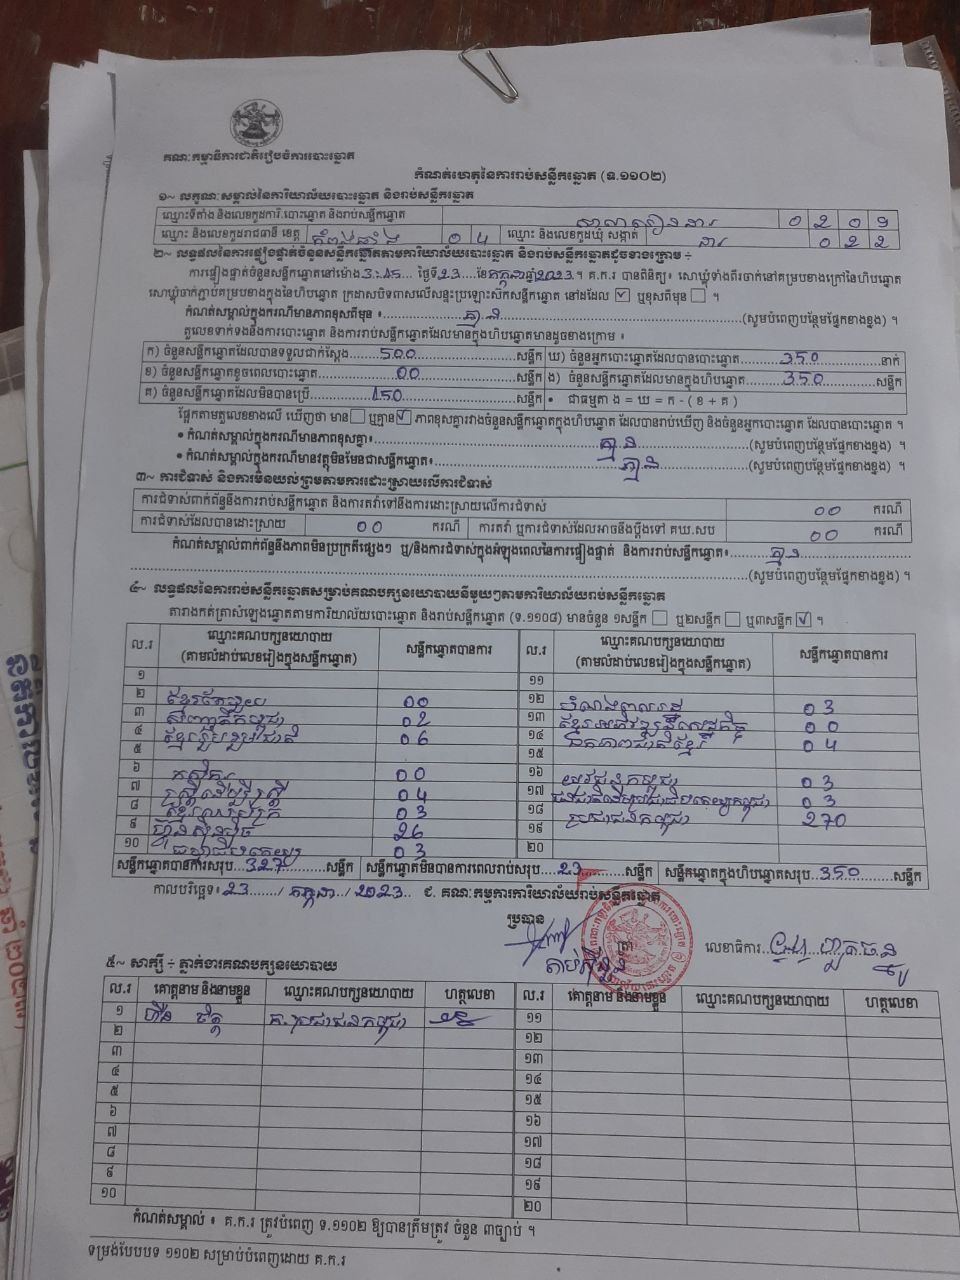 គណៈកម្មាធិការជាតិរៀបចំការបោះឆ្នោត
កំណត់ហេតុនៃការរាប់សន្លឹកឆ្នោត (ទ.១១០២)
១~ លក្ខណៈសម្គាល់នៃការិយាល័យបោះឆ្នោត និងរាប់សន្លឹកឆ្នោត
ឈ្មោះទីតាំង និងលេខកូដការិ.បោះឆ្នោត និងរាប់សន្លឹកឆ្នោត សាលារៀនដារ ០ ២ ០ ១
ឈ្មោះ និងលេខកូដរាជធានី ខេត្ត កំពង់ឆ្នាំង ០ ៤ ឈ្មោះ និងលេខកូដឃុំ សង្កាត់ ដារ ០ ២ ២
២~ លទ្ធផលនៃការផ្ទៀងផ្ទាត់ចំនួនសន្លឹកឆ្នោតតាមការិយាល័យបោះឆ្នោត និងរាប់សន្លឹកឆ្នោតដូចខាងក្រោម ÷
ការផ្ទៀងផ្ទាត់ចំនួនសន្លឹកឆ្នោតនៅម៉ោង 3:15 ថ្ងៃទី២៣ ខែកក្កដាឆ្នាំ២០២៣។ គ.ក.រ បានពិនិត្យ៖ សោឃ្លុំទាំងពីរចាក់នៅគម្របខាងក្រៅនៃហិបឆ្នោត
សោឃ្លុំចាក់ភ្ជាប់គម្របខាងក្នុងនៃហិបឆ្នោត ក្រដាសបិទពាសលើសន្ទះប្រឡោះស៊កសន្លឹកឆ្នោត នៅដដែល ☑ ឬខុសពីមុន ☐ ។
កំណត់សម្គាល់ក្នុងករណីមានភាពខុសពីមុន ៖ គ្មាន (សូមបំពេញបន្ថែមផ្នែកខាងខ្នង) ។
តួលេខទាក់ទងនឹងការបោះឆ្នោត និងការរាប់សន្លឹកឆ្នោតដែលមានក្នុងហិបឆ្នោតមានដូចខាងក្រោម ៖
ក) ចំនួនសន្លឹកឆ្នោតដែលបានទទួលជាក់ស្ដែង 500 សន្លឹក ឃ) ចំនួនអ្នកបោះឆ្នោតដែលបានបោះឆ្នោត 350 នាក់
ខ) ចំនួនសន្លឹកឆ្នោតខូចពេលបោះឆ្នោត 00 សន្លឹក ង) ចំនួនសន្លឹកឆ្នោតដែលមានក្នុងហិបឆ្នោត 350 សន្លឹក
គ) ចំនួនសន្លឹកឆ្នោតដែលមិនបានប្រើ 150 សន្លឹក • ជាធម្មតា ង = ឃ = ក - ( ខ + គ )
ផ្អែកតាមតួលេខខាងលើ ឃើញថា មាន ☐ ឬគ្មាន ☑ ភាពខុសគ្នារវាងចំនួនសន្លឹកឆ្នោតក្នុងហិបឆ្នោត ដែលបានរាប់ឃើញ និងចំនួនអ្នកបោះឆ្នោត ដែលបានបោះឆ្នោត ។
• កំណត់សម្គាល់ក្នុងករណីមានភាពខុសគ្នា៖ គ្មាន (សូមបំពេញបន្ថែមផ្នែកខាងខ្នង) ។
• កំណត់សម្គាល់ក្នុងករណីមានវត្ថុមិនមែនជាសន្លឹកឆ្នោត៖ គ្មាន (សូមបំពេញបន្ថែមផ្នែកខាងខ្នង) ។
៣~ ការជំទាស់ និងការមិនយល់ព្រមតាមការដោះស្រាយលើការជំទាស់
ការជំទាស់ពាក់ព័ន្ធនឹងការរាប់សន្លឹកឆ្នោត និងការតវ៉ាទៅនឹងការដោះស្រាយលើការជំទាស់ 00 ករណី
ការជំទាស់ដែលបានដោះស្រាយ 00 ករណី ការតវ៉ា ឬការជំទាស់ដែលអាចនឹងប្ដឹងទៅ គឃ.សប 00 ករណី
កំណត់សម្គាល់ពាក់ព័ន្ធនឹងភាពមិនប្រក្រតីផ្សេងៗ ឬ/និងការជំទាស់ក្នុងអំឡុងពេលនៃការផ្ទៀងផ្ទាត់ និងការរាប់សន្លឹកឆ្នោត៖ គ្មាន
(សូមបំពេញបន្ថែមផ្នែកខាងខ្នង) ។
៤~ លទ្ធផលនៃការរាប់សន្លឹកឆ្នោតសម្រាប់គណបក្សនយោបាយនីមួយៗតាមការិយាល័យរាប់សន្លឹកឆ្នោត
តារាងកត់ត្រាសំឡេងឆ្នោតតាមការិយាល័យបោះឆ្នោត និងរាប់សន្លឹកឆ្នោត (ទ.១១០៨) មានចំនួន ១សន្លឹក ☐ ឬ២សន្លឹក ☐ ឬ៣សន្លឹក ☑ ។
ល.រ ឈ្មោះគណបក្សនយោបាយ (តាមលំដាប់លេខរៀងក្នុងសន្លឹកឆ្នោត) សន្លឹកឆ្នោតបានការ ល.រ ឈ្មោះគណបក្សនយោបាយ (តាមលំដាប់លេខរៀងក្នុងសន្លឹកឆ្នោត) សន្លឹកឆ្នោតបានការ
១ ១១
២ 00 ១២ 03
៣ 02 ១៣ 00
៤ ខ្មែររួបរួមជាតិ 06 ១៤ ឯកភាពជាតិខ្មែរ 04
៥ ១៥
៦ កសិករ 00 ១៦ យុវជនកម្ពុជា 03
៧ ស្ត្រីដើម្បីស្ត្រី 04 ១៧ 03
៨ 03 ១៨ ប្រជាជនកម្ពុជា 270
៩ ហ៊្វុនស៊ិនប៉ិច 26 ១៩
១០ ធម្មាធិបតេយ្យ 03 ២០
សន្លឹកឆ្នោតបានការសរុប 327 សន្លឹក សន្លឹកឆ្នោតមិនបានការពេលរាប់សរុប 23 សន្លឹក សន្លឹកឆ្នោតក្នុងហិបឆ្នោតសរុប 350 សន្លឹក
កាលបរិច្ឆេទ៖ 23 / កក្កដា / ២០២៣ ជ. គណៈកម្មការការិយាល័យរាប់សន្លឹកឆ្នោត
ប្រធាន ត្រា លេខាធិការ
៥~ សាក្សី ÷ ភ្នាក់ងារគណបក្សនយោបាយ
ល.រ គោត្តនាម និងនាមខ្លួន ឈ្មោះគណបក្សនយោបាយ ហត្ថលេខា ល.រ គោត្តនាម និងនាមខ្លួន ឈ្មោះគណបក្សនយោបាយ ហត្ថលេខា
១ គ.ប្រជាជនកម្ពុជា ១១
២ ១២
៣ ១៣
៤ ១៤
៥ ១៥
៦ ១៦
៧ ១៧
៨ ១៨
៩ ១៩
១០ ២០
កំណត់សម្គាល់ ៖ គ.ក.រ ត្រូវបំពេញ ទ.១១០២ ឱ្យបានត្រឹមត្រូវ ចំនួន ៣ច្បាប់ ។
ទម្រង់បែបបទ ១១០២ សម្រាប់បំពេញដោយ គ.ក.រ